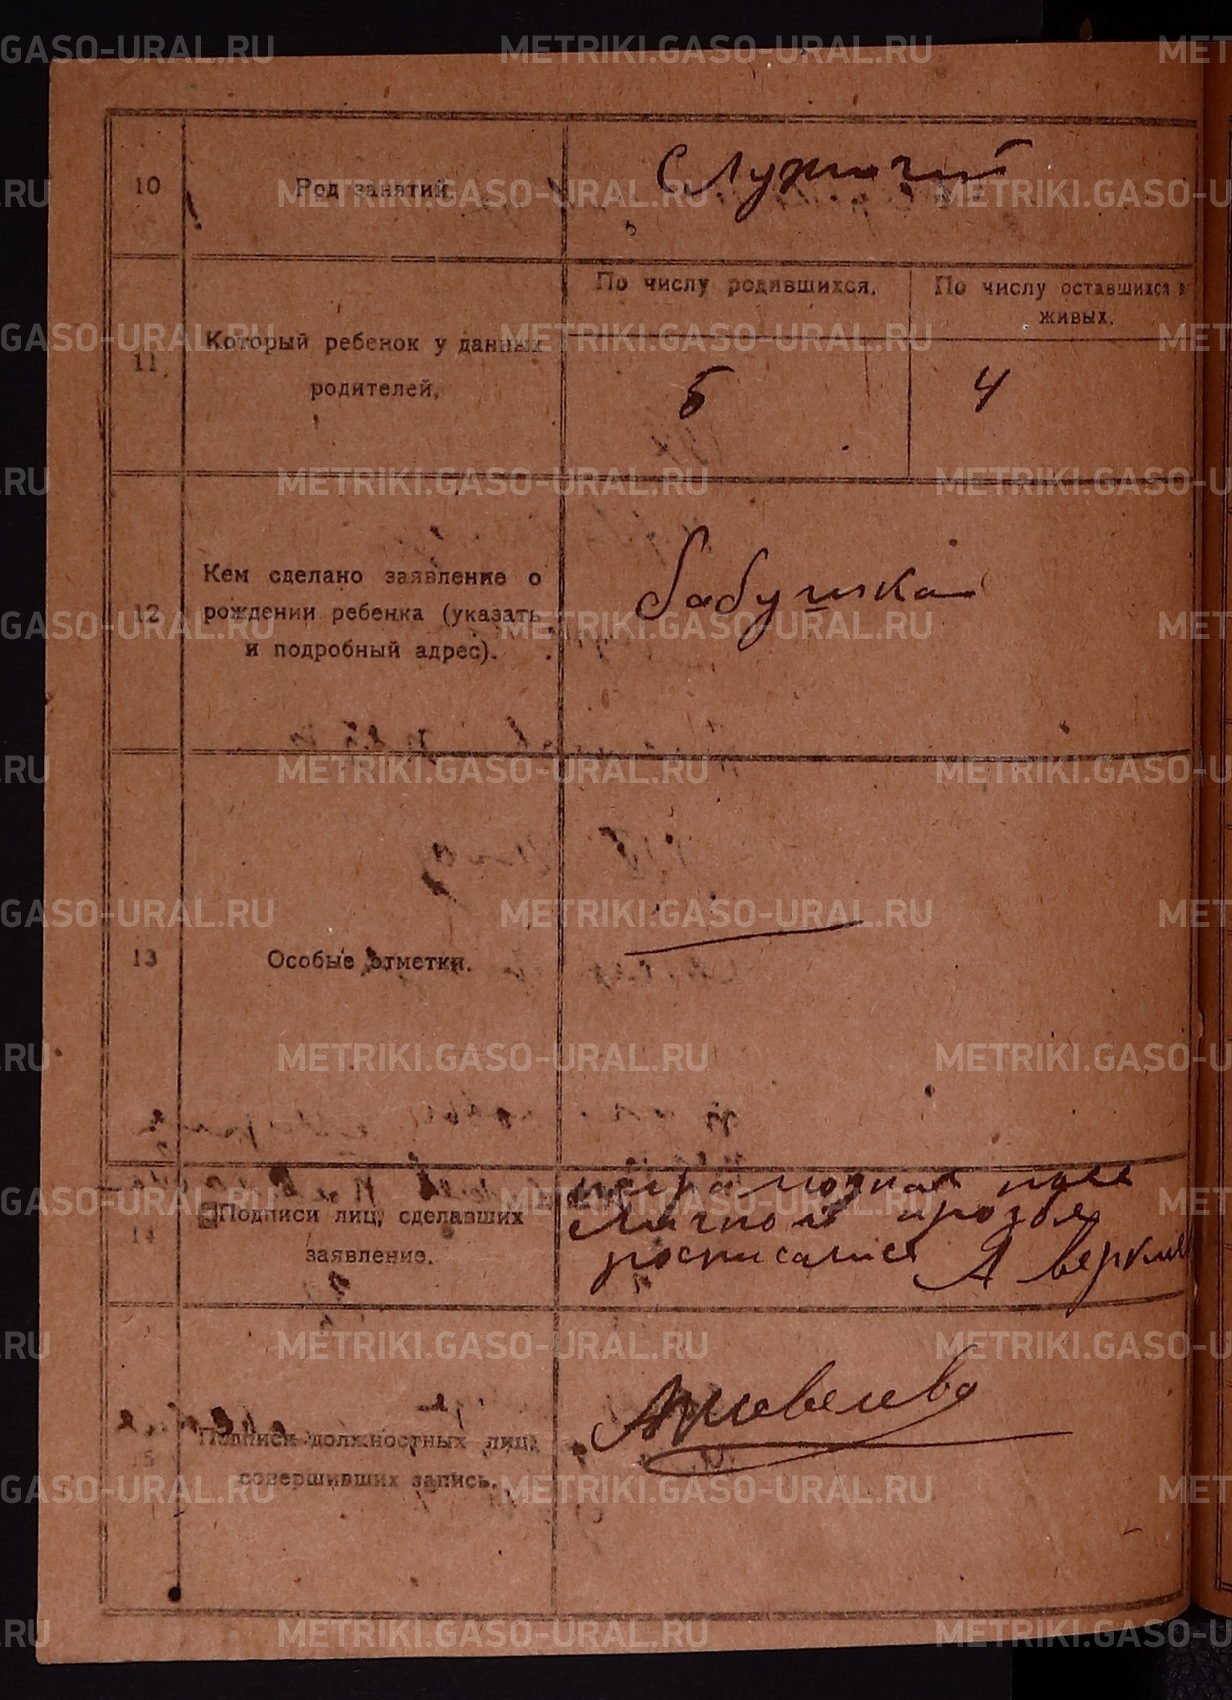 METRIKI.GASO-URAL.RU
10
Род занятий
Служачий
11
Который ребенок у данных
родителей.
По числу родившихся.
По числу оставшихся в
живых.
5
4
12
Кем сделано заявление о
рождении ребенка (указать
и подробный адрес).
бабушка
13
Особые отметки.
14
Подписи лиц, сделавших
заявление.
росписался
15
Подписи должностных лиц,
совершивших запись.